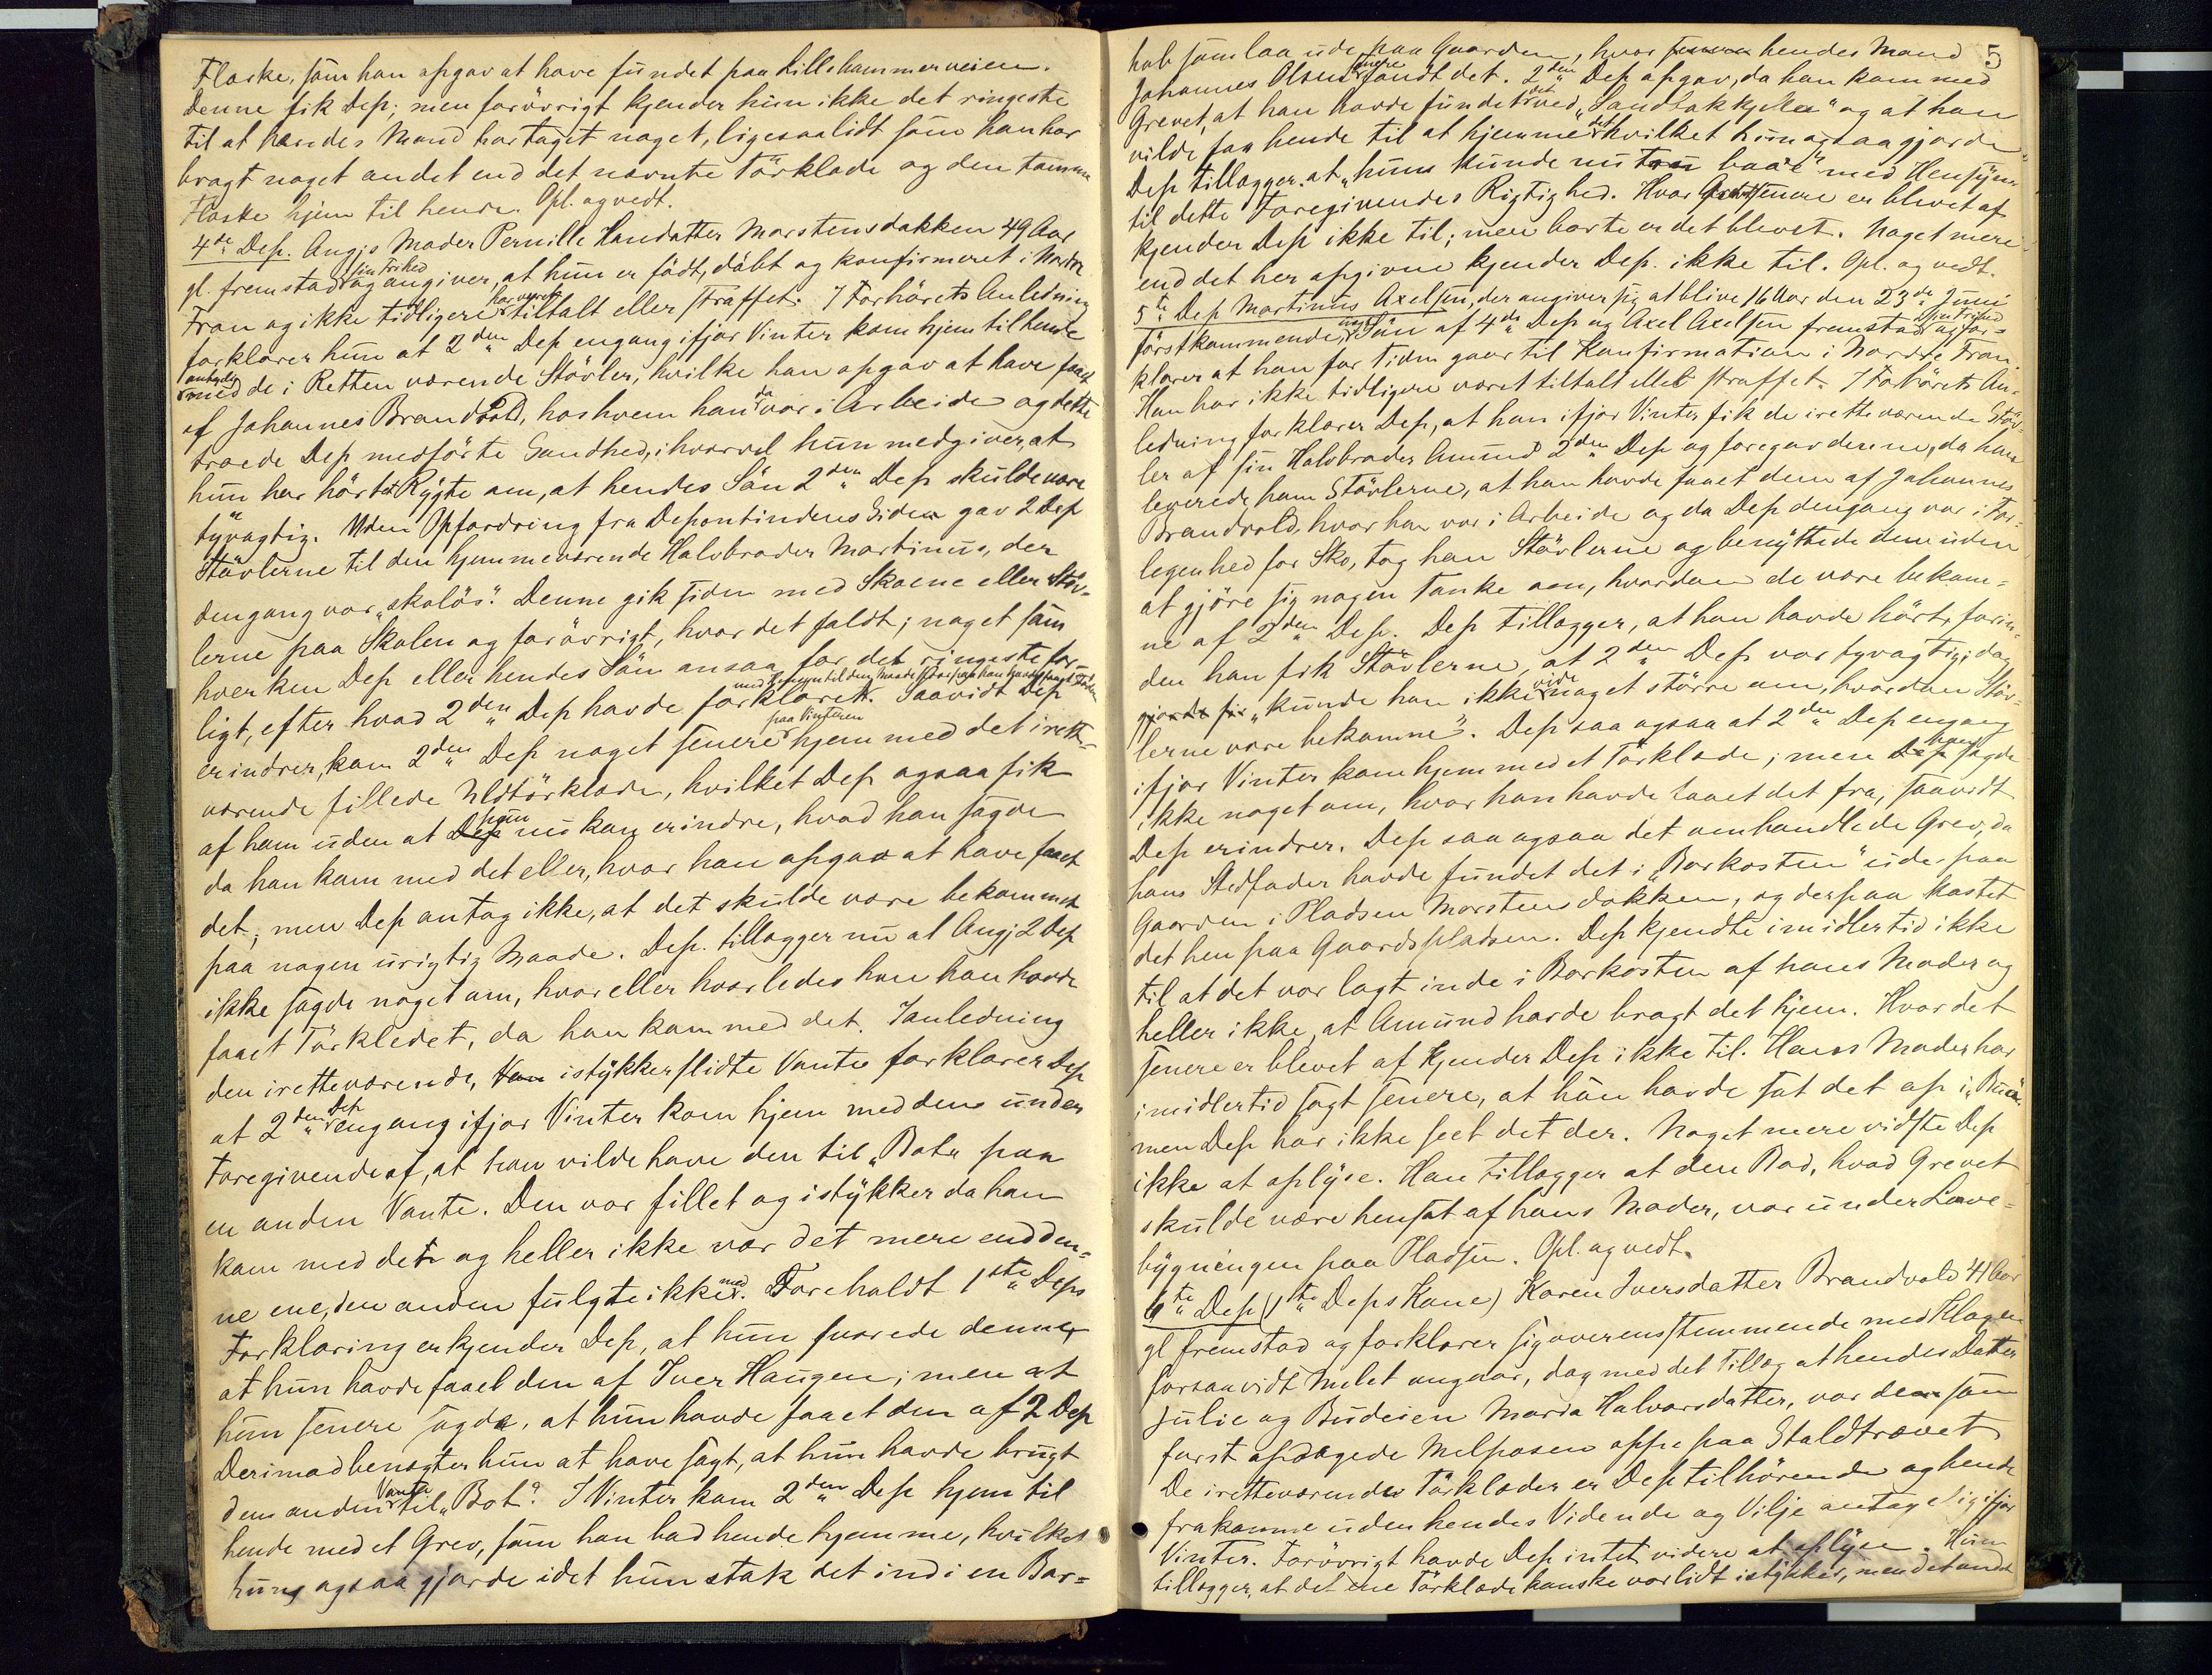 Flaske, som han opgav at have fundet paa Lillehammerveien.
Denne fik Dep; men forövrigt kjender hun ikke det ringeste
til at hendes Mand har taget noget, ligesaalidt som han har
bragt noget andet end det nævnte Törklæde og den tomme
Flaske hjem til hende. Opl. og vedt.
4de Dep. Angjs Moder Pernille Hansdatter Morstensdokken 49 Aar
gl. fremstod sin Frihed og angiver, at hun er födt, döbt og konfirmeret i Nordre
Fron og ikke tidligere har været tiltalt eller straffet. I Forhörets Anledning
forklarer hun at 2den Dep engang ifjor Vinter kom hjem til hende
med de i Retten værende Stövler, hvilke han opgav at have faaet
af Johannes Brandvold, hos hvem han da var i Arbeide og dette
troede Dep medförte Sandhed, ihvorvel hun medgiver, at
hun har hört et Rygte om, at hendes Sön 2den Dep skulde være
tyvagtig. Uden Opfordring fra Deponentindens Side gav 2 Dep
Stövlerne til den hjemmeværende Halvbroder Martinus, der
dengang var "skolös". Denne gik siden med Skoene eller Stöv-
lerne paa Skolen og forövrigt, hvor det faldt; noget som
hverken Dep eller hendes Sön ansaa for det ringeste for-
ligt, efter hvad 2den Dep havde forklaret med Hensyn til den Maade hvorpaa han havde faaet dem. Saavidt Dep
erindrer, kom 2den Dep noget senere paa Vinteren hjem med det irette-
værende fillede Uldtörklæde, hvilket Dep ogsaa fik
af ham uden at Dep hun nu kan erindre, hvad han sagde
da han kom med det eller, hvor han opgav at have faaet
det; men Dep antog ikke, at det skulde være bekommet
paa nogen urigtig Maade. Dep. tillægger nu at Angj 2 Dep
ikke sagde noget om, hvor eller hvorledes han havde
faaet Törklædet, da han kom med det. I anledning
den iretteværende, Van istykkerslidte Vante forklarer Dep
at 2den Dep engang ifjor Vinter kom hjem med den under
Foregivende af, at han vilde have den til "Bot" paa
en anden Vante. Den var fillet og istykker da han
kom med det og heller ikke var det mere end den-
ne ene, den anden fulgte ikke med. Foreholdt 1ste Deps
Forklaring erkjender Dep, at hun svarede denne
at hun havde faaet den af Iver Haugen; men at
hun senere sagde, at hun havde faaet den af 2 Dep
Derimod benægter hun at have sagt, at hun havde brugt
den anden Vante til "Bot". I Vinter kom 2den Dep hjem til
hende med et Grev, som han bad hende hjemme, hvilket
hun ogsaa gjorde idet hun stak det ind i en Bar-
5
hob som laa ude paa Gaarden, hvor senere hendes Mand
Johannes Olsen senere fandt det. 2den Dep opgav, da han kom med
Grevet, at han havde fundet det ved "Sandbakkjella" og at han
vilde faa hende til at hjemme det hvilket hun ogsaa gjorde.
Dep tillægger at "hun kunde nu tru baae" med Hensyn
til dette Foregivendes Rigtighed. Hvor Grevet senere er blevet af
kjender Dep ikke til; men borte er det blevet. Noget mere
end det her opgivne kjender Dep. ikke til. Opl. og vedt.
5te Dep Martinus Axelsen, der angiver sig at blive 16 Aar den 23de Juni
förstkommende, Sön af 4de Dep og Axel Axelsen fremstod sin Frihed og for-
klarer at han for Tiden gaar til Konfirmation i Nordre Fron.
Han har ikke tidligere været tiltalt eller straffet. I Forhörets An-
ledning forklarer Dep, at han ifjor Vinter fik de iretteværende Stöv-
ler af sin Halvbroder Amund 2den Dep og foregav denne, da han
leverede ham Stövlerne, at han havde faaet dem af Johannes
Brandvold, hvor han var i Arbeide og da Dep dengang var i For-
legenhed for Sko, tog han Stövlerne og benyttede dem uden
at gjöre sig nogen Tanke om, hvordan de vare bekom-
ne af 2den Dep. Dep tillægger, at han havde hört, forin-
den han fik Stövlerne, at 2den Dep var tyvagtig; dog
gjorde sig "kunde han ikke vide noget större om, hvordan Stöv-
lerne vare bekomne". Dep saa ogsaa at 2den Dep engang
ifjor Vinter kom hjem med et Törklæde; men Dep han sagde
ikke noget om, hvor han havde faaet det fra, saavidt
Dep erindrer. Dep saa ogsaa det omhandlede Grev, da
hans Stedfader havde fundet det i "Barkosten" ude paa
Gaarden i Pladsen Morstensdokken, og derpaa kastet
det hen paa Gaardspladsen. Dep kjendte imidlertid ikke
til at det var lagt inde i Barkosten af hans Moder og
heller ikke, at Amund havde bragt det hjem. Hvor det
senere er blevet af kjender Dep ikke til. Hans Moder har
imidlertid sagt senere, at hun havde sat det op i "Buen"
men Dep har ikke seet det der. Noget mere vidste Dep
ikke at oplyse. Han tillægger at den Bod, hvad Grevet
skulde være hensat af hans Moder, var under Laave-
bygningen paa Pladsen. Opl. og vedt.
6te Dep (1ste Deps Kone) Karen Iversdatter Brandvold 41 Aar
gl fremstod og forklarer sig overensstemmende med Klagen
forsaavidt Melet angaar, dog med det Tillæg at hendes Datter
Julie og Budeien Maria Halvorsdatter, var dem som
först opdagede Melposen oppe paa Staldtrevet.
De iretteværende Törklæder er Dep tilhörende og hende
frakomne uden hendes Vidende og Vilje antagelig ifjor
Vinter. Forövrigt havde Dep intet videre at oplyse. Hun
tillægger, at det ene Törklæde kanske var lidt istykker, men det andet